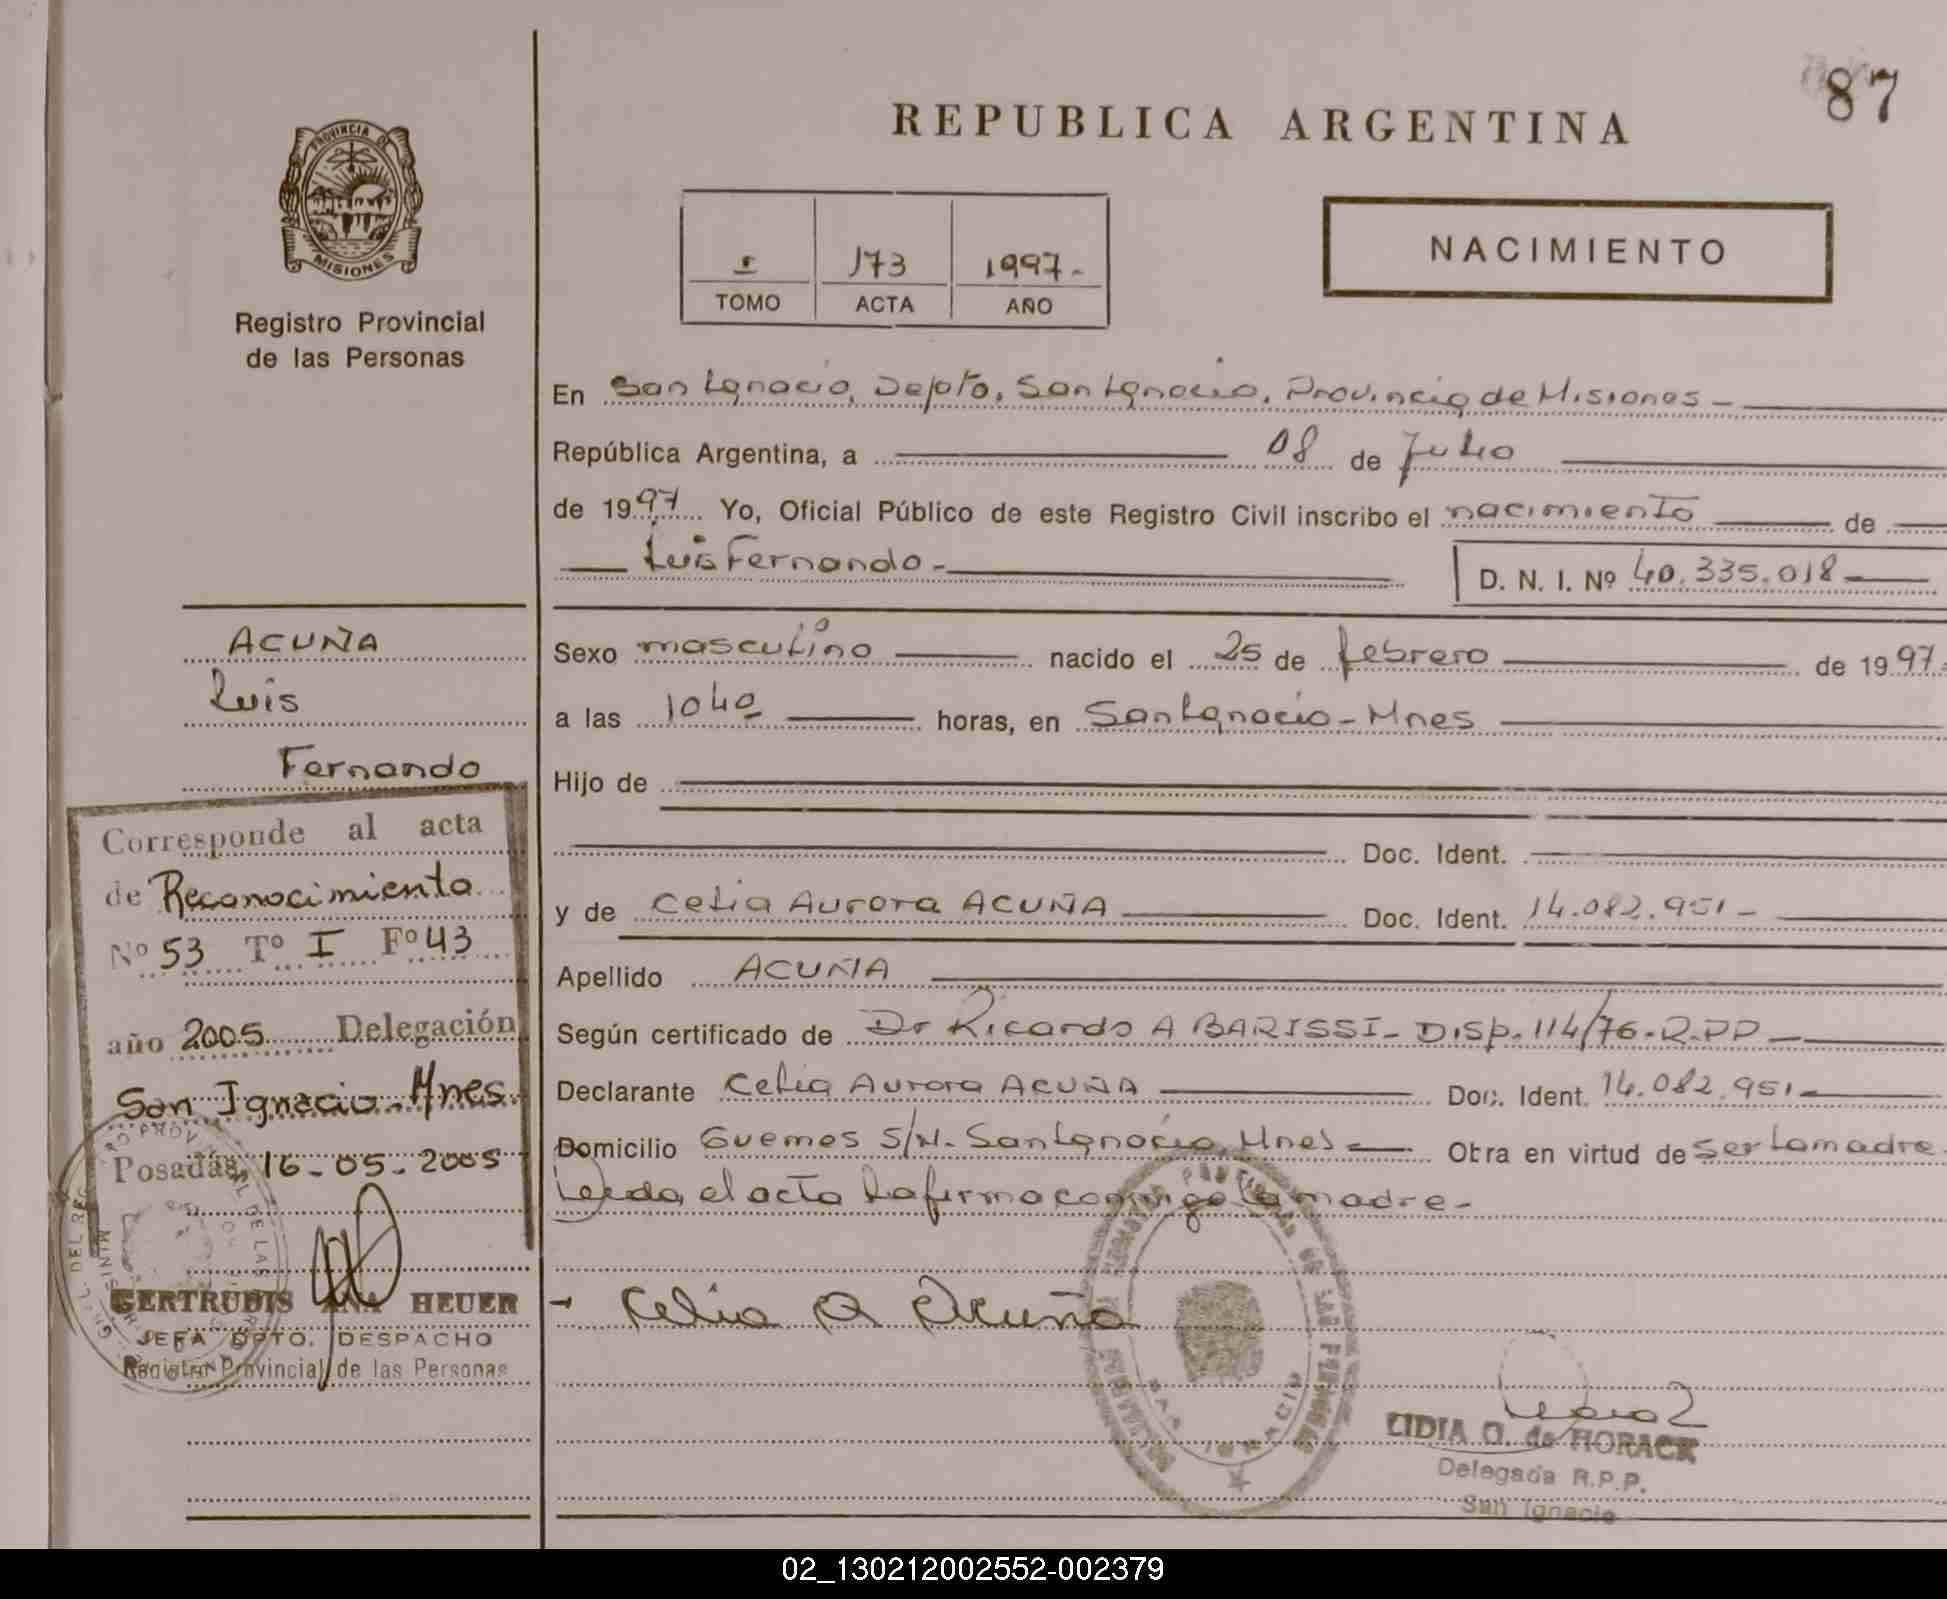 87
REPUBLICA ARGENTINA
PROVINCIA DE
MISIONES
Registro Provincial
de las Personas
I 173 1997.-
TOMO ACTA AÑO
NACIMIENTO
En San Ignacio, Depto. San Ignacio, Provincia de Misiones -
República Argentina, a 08 de Julio
de 1997 Yo, Oficial Público de este Registro Civil inscribo el nacimiento de
Luis Fernando - D. N. I. Nº 40.335.018
Sexo masculino nacido el 25 de febrero de 1997.
a las 1040 horas, en San Ignacio - Mnes
Hijo de
Doc. Ident.
y de Celia Aurora ACUÑA Doc. Ident. 14.082.951 -
Apellido ACUÑA
Según certificado de Dr Ricardo A BARISSI - Disp. 114/76 - R.PP
Declarante Celia Aurora ACUÑA Doc. Ident. 14.082.951
Domicilio Guemes S/N. San Ignacio, Mnes Obra en virtud de ser la madre.
Leida el acta la firma conmigo la madre -
Celia A Acuña
LIDIA O. de HORACK
Delegada R.P.P.
San Ignacio
ACUÑA
Luis
Fernando
Corresponde al acta
de Reconocimiento
Nº 53 Tº I Fº 43
año 2005 Delegación
San Ignacio - Mnes
Posadas, 16-05-2005
GERTRUDIS ANA HEUER
JEFA DPTO. DESPACHO
Registro Provincial de las Personas
02_130212002552-002379